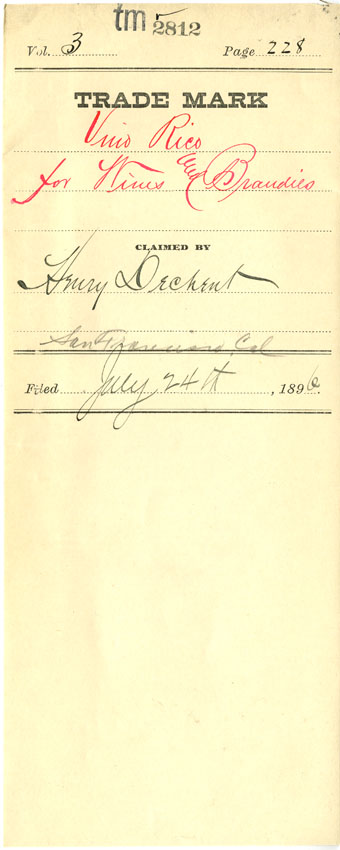 tm 2812
Vol. 3 Page 228
TRADE MARK
Vino Rico
for Wines and Brandies
CLAIMED BY
Henry Dechent
San Francisco Cal
Filed July 24th, 1896.